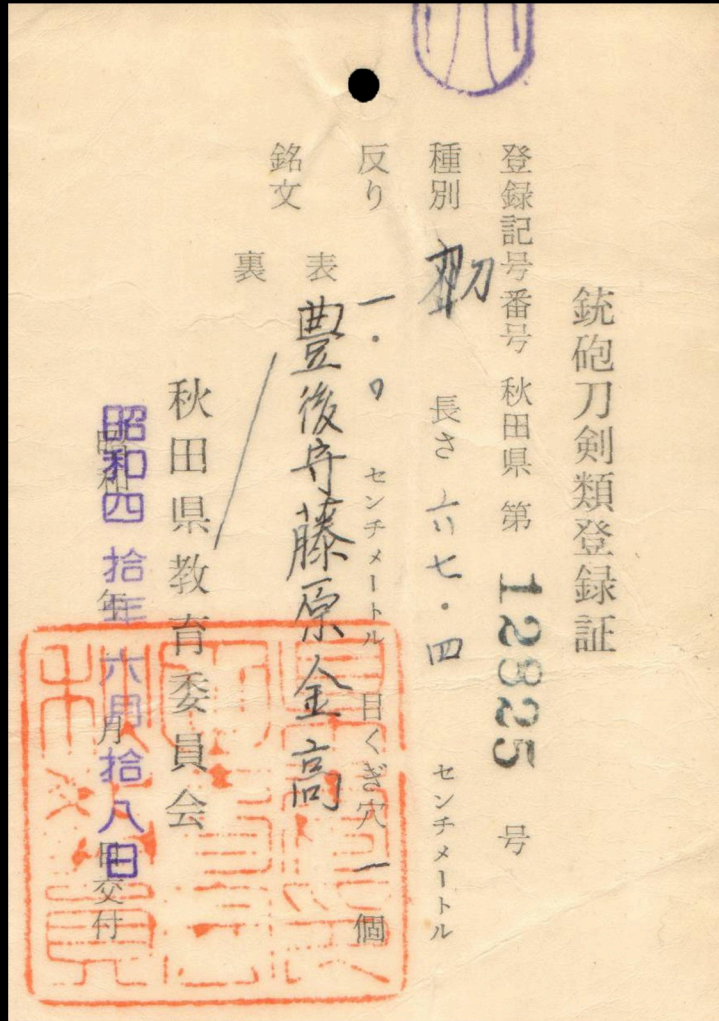 銃砲刀剣類登録証
登録記号番号 秋田県 第 12825 号
種別 刀 長さ 六七・四 センチメートル
反り 一・〇 センチメートル 目くぎ穴 一 個
銘文 表 豊後守藤原金高
裏
秋田県教育委員会
昭和四拾年六月拾八日交付